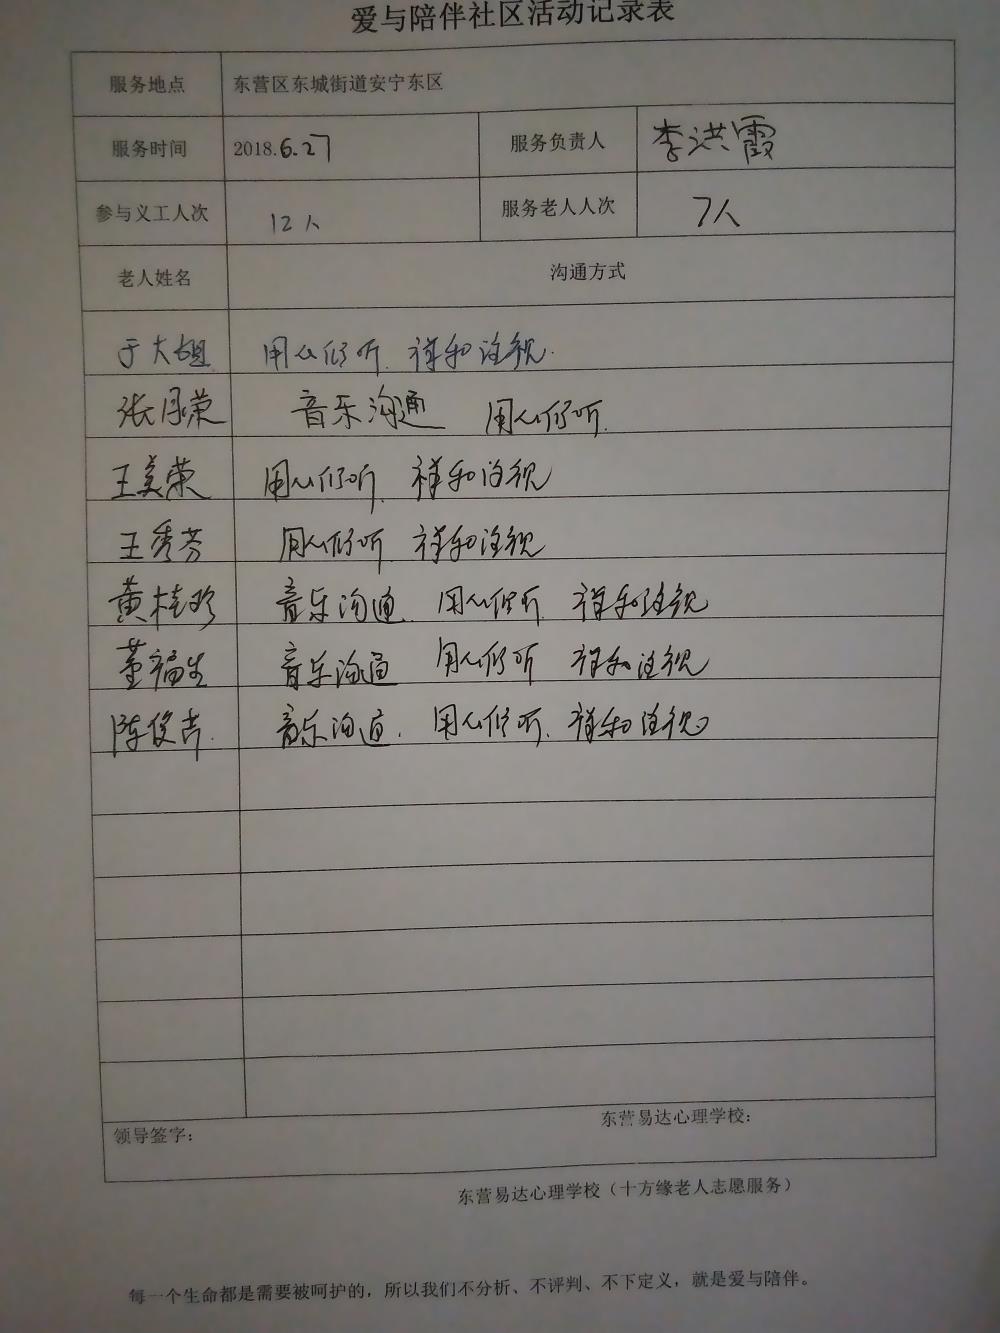 爱与陪伴社区活动记录表
服务地点 东营区东城街道安宁东区
服务时间 2018.6.27 服务负责人 李洪霞
参与义工人次 12人 服务老人人次 7人
老人姓名 沟通方式
于大姐 用心倾听 祥和注视.
张月荣 音乐沟通 用心倾听.
王美荣 用心倾听. 祥和注视
王秀芳 用心倾听 祥和注视
黄桂珍 音乐沟通. 用心倾听. 祥和注视
董福生 音乐沟通 用心倾听 祥和注视
陈俊吉. 音乐沟通. 用心倾听. 祥和注视
领导签字: 东营易达心理学校:
东营易达心理学校（十方缘老人志愿服务）
每一个生命都是需要被呵护的，所以我们不分析、不评判、不下定义，就是爱与陪伴。